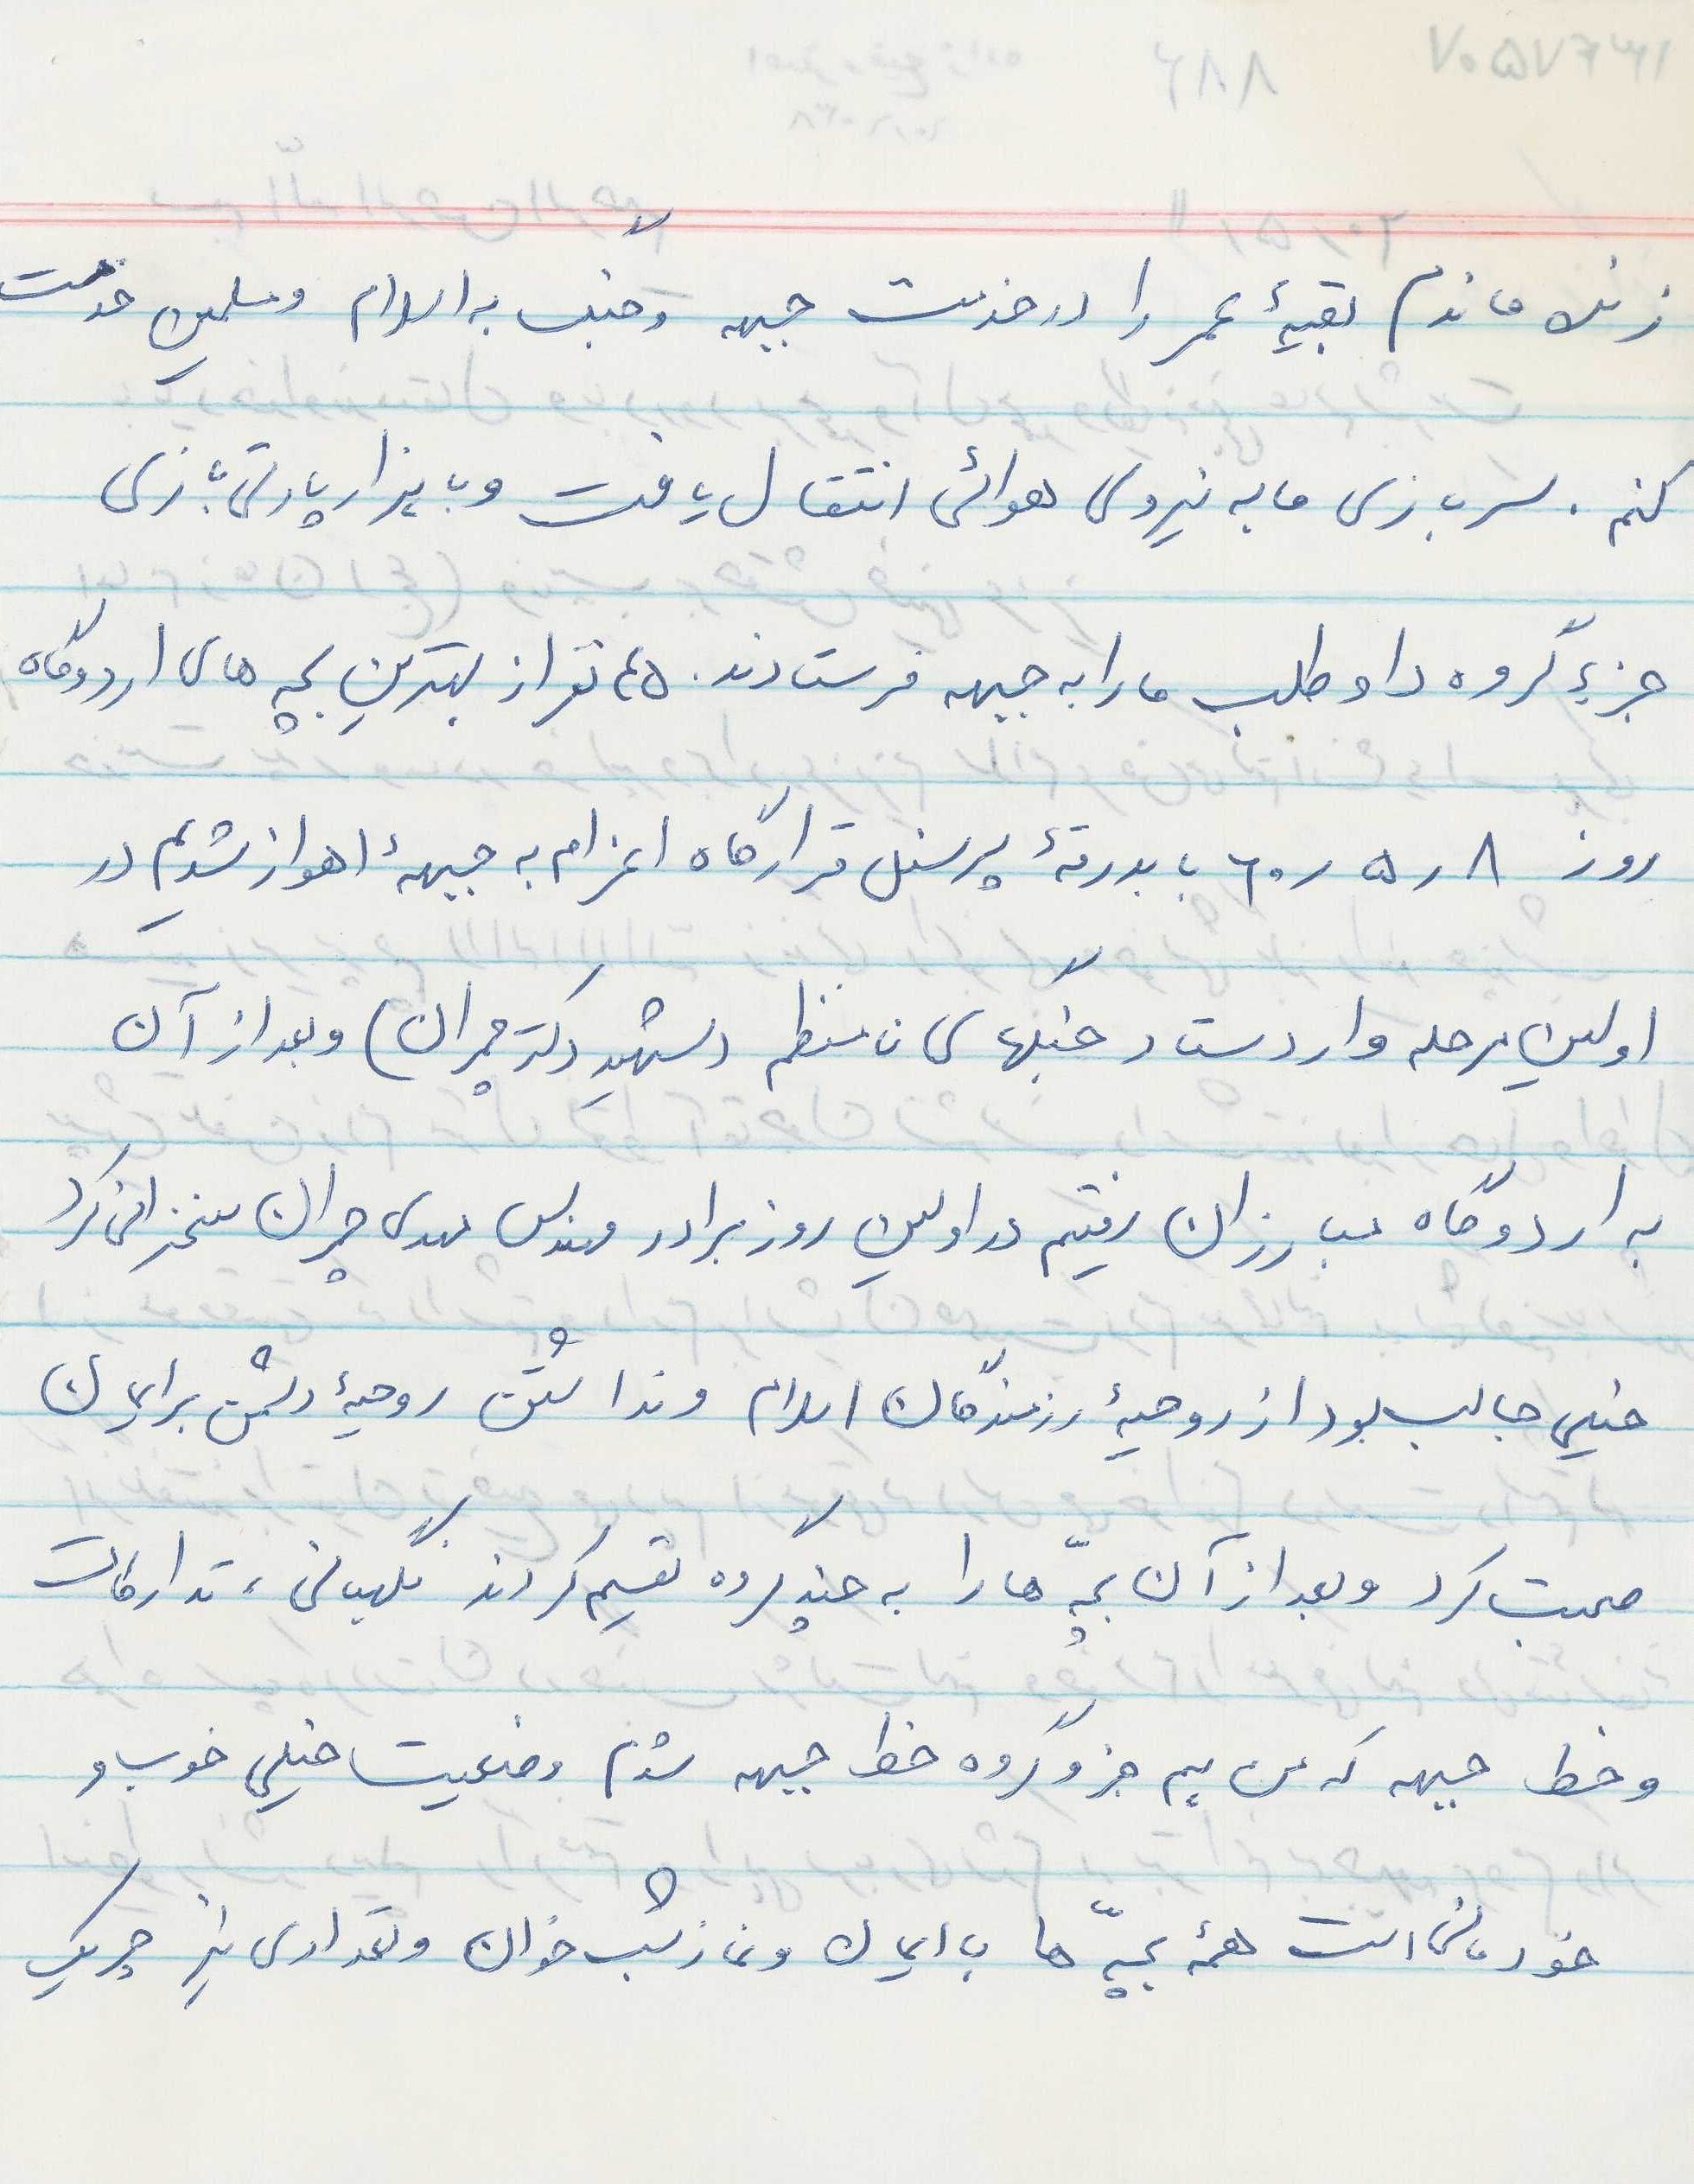 زنده ماندم بقیهٔ عمر را در خدمت جبهه و جنگ به اسلام و مسلمین خدمت
کنم . سربازی ما به نیروی هوائی انتقال یافت و با هزار پارتی بازی
جزء گروه داوطلب ما را به جبهه فرستادند. ۴۵ نفر از بهترین بچه های اردوگاه
روز ۸ ر ۵ ر ۶۰ با بدرقهٔ پرسنل قرارگاه اعزام به جبههٔ اهواز شدیم در
اولین مرحله وارد ستاد جنگهای نامنظم (شهید دکتر چمران) و بعد از آن
به اردوگاه رفتیم در اولین روز برادر مهندس مهدی چمران سخنرانی کرد
خیلی جالب بود از روحیهٔ رزمندگان اسلام و نداشتن روحیهٔ دشمن برایمان
صحبت کرد و بعد از آن بچّه ها را به چند گروه تقسیم کردند نگهبانی ، تدارکات
و خط جبهه که من هم جزو گروه خط جبهه شدم وضعیت خیلی خوب و
خودمانی است همهٔ بچّه ها با ایمان و نماز شب خوان و تعدادی نیز چریک